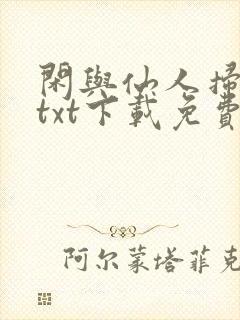 閑與仙人掃
txt下載免費
阿尔蒙塔菲克